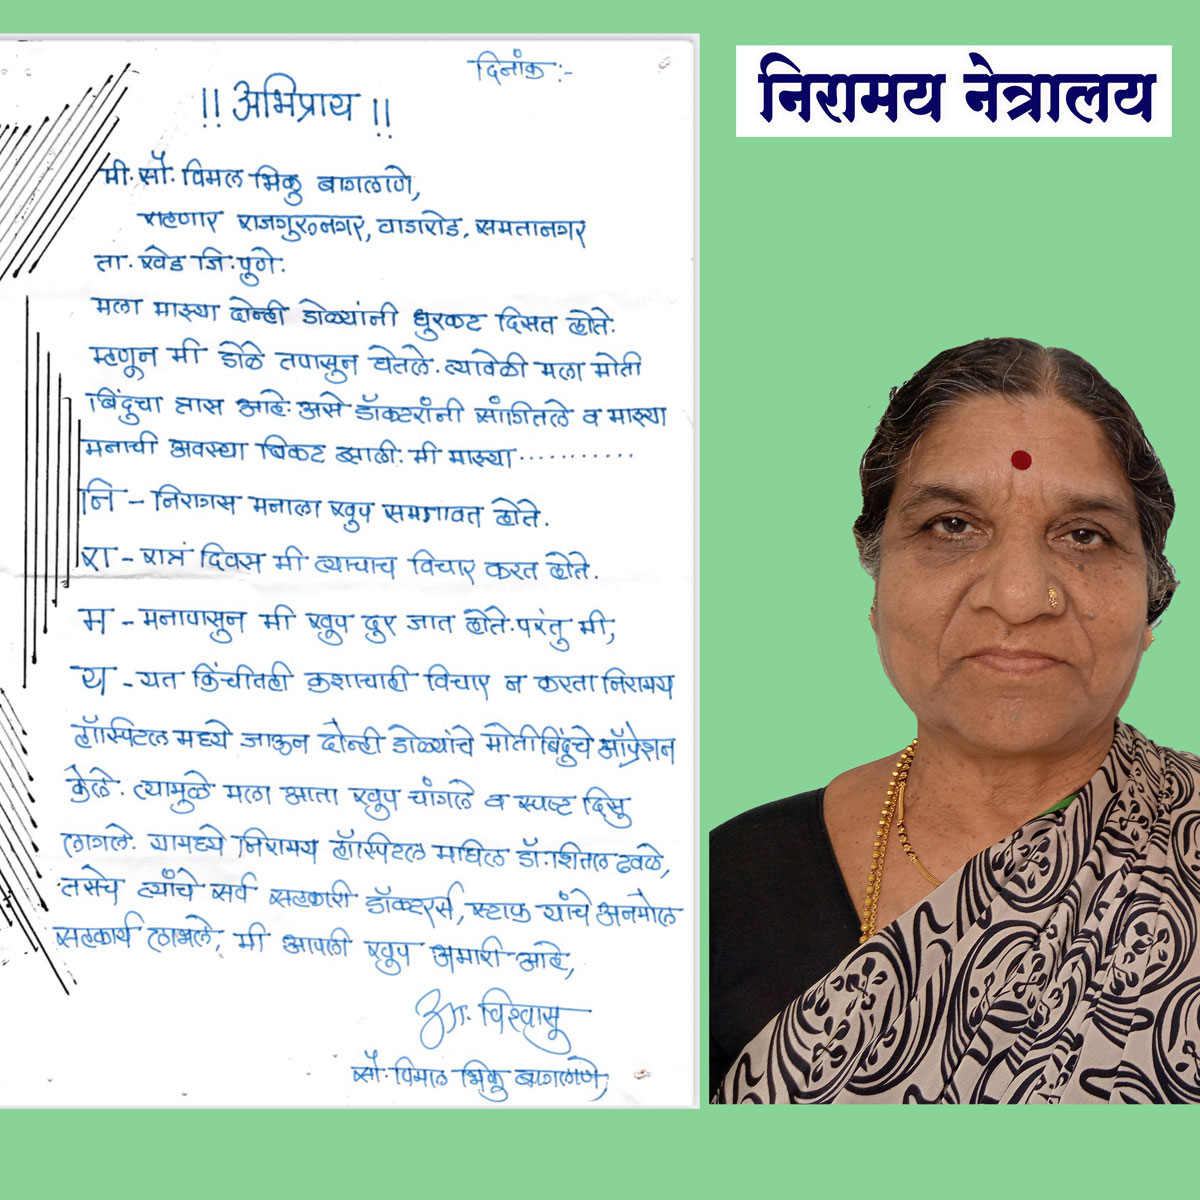 दिनांक :-
!! अभिप्राय !!
मी. सौ. विमल भिकु बागलाणे,
राहणार राजगुरुनगर, वाडारोड, समतानगर
ता. खेड जि. पुणे.
मला माझ्या दोन्ही डोळ्यांनी धुरकट दिसत होते.
म्हणून मी डोळे तपासुन घेतले. त्यावेळी मला मोती
बिंदुचा त्रास आहे. असे डॉक्टरांनी सांगितले व माझ्या
मनाची अवस्था बिकट झाली. मी माझ्या ..........
नि - निरागस मनाला खुप समजावत होते.
रा - रात्रं दिवस मी त्याचाच विचार करत होते.
म - मनापासुन मी खुप दुर जात होते. परंतु मी,
य - यत किंचीतही कशाचाही विचार न करता निरामय
हॉस्पिटल मध्ये जाऊन दोन्ही डोळ्यांचे मोतीबिंदुचे ऑप्रेशन
केले. त्यामुळे मला आता खुप चांगले व स्पष्ट दिसु
लागले. यामध्ये निरामय हॉस्पिटल मधिल डॉ. शितल ढवळे,
तसेच त्यांचे सर्व सहकारी डॉक्टरर्स, स्टाफ यांचे अनमोल
सहकार्य लाभले, मी आपली खुप अभारी आहे,
आ. विश्वासु
सौ. विमल भिकु बागलाणे,
निरामय नेत्रालय